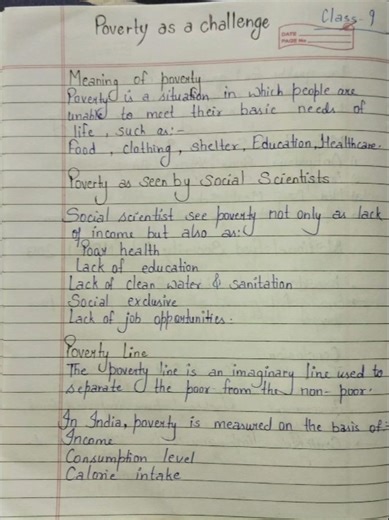 Class-9
Poverty as a challenge
DATE
PAGE No.
Meaning of poverty
Poverty is a situation in which people are
unable to meet their basic needs of
life, such as:-
Food, clothing, shelter, Education, Healthcare.
Poverty as seen by Social Scientists
Social scientist see poverty not only as lack
of income but also as:
Poor health
Lack of education
Lack of clean water & sanitation
Social exclusive
Lack of job opportunities.
Poverty Line
The poverty line is an imaginary line used to
separate the poor from the non-poor.
In India, poverty is measured on the basis of:-
Income
Consumption level
Calorie intake